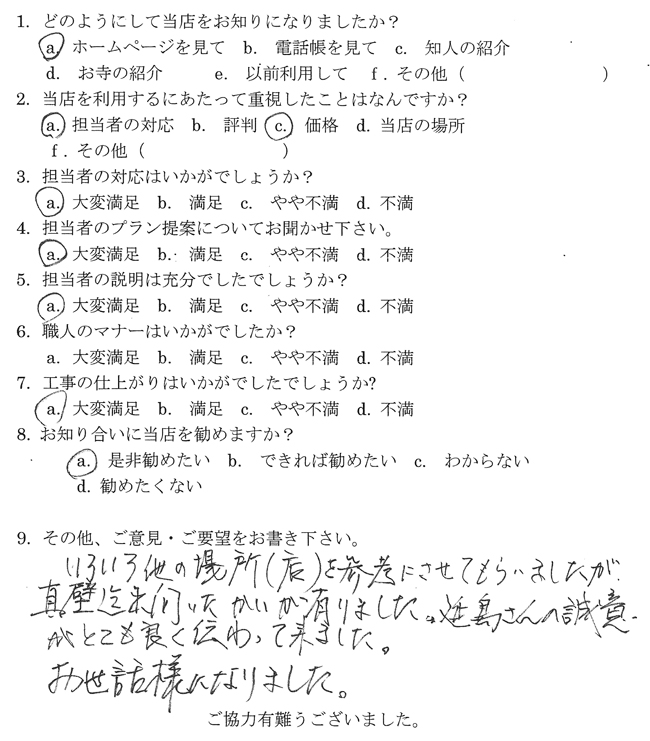 1. どのようにして当店をお知りになりましたか？
a. ホームページを見て b. 電話帳を見て c. 知人の紹介
d. お寺の紹介 e. 以前利用して f. その他（ ）
2. 当店を利用するにあたって重視したことはなんですか？
a. 担当者の対応 b. 評判 c. 価格 d. 当店の場所
f. その他（ ）
3. 担当者の対応はいかがでしょうか？
a. 大変満足 b. 満足 c. やや不満 d. 不満
4. 担当者のプラン提案についてお聞かせ下さい。
a. 大変満足 b. 満足 c. やや不満 d. 不満
5. 担当者の説明は充分でしたでしょうか？
a. 大変満足 b. 満足 c. やや不満 d. 不満
6. 職人のマナーはいかがでしたか？
a. 大変満足 b. 満足 c. やや不満 d. 不満
7. 工事の仕上がりはいかがでしたでしょうか?
a. 大変満足 b. 満足 c. やや不満 d. 不満
8. お知り合いに当店を勧めますか？
a. 是非勧めたい b. できれば勧めたい c. わからない
d. 勧めたくない
9. その他、ご意見・ご要望をお書き下さい。
いろいろ他の場所(店)を参考にさせてもらいましたが、
真壁迄来伺ったかいが有りました。島さんの誠意
がとても良く伝わって来ました。
お世話様になりました。
ご協力有難うございました。